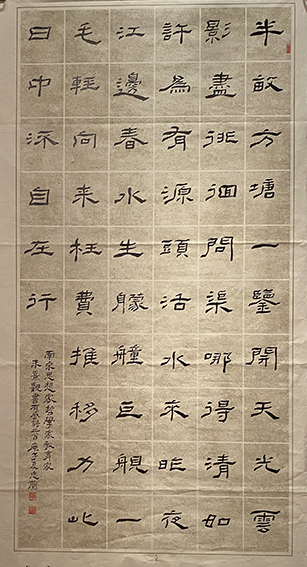 半畝方塘一鑒開天光雲
影盡徘徊問渠哪得清如
許為有源頭活水來昨夜
江邊春水生艨艟巨舰一
毛輕向来枉費推移力此
日中流自在行
南宋思想家哲學家教育家
朱熹觀書有感詩二首庚子夏